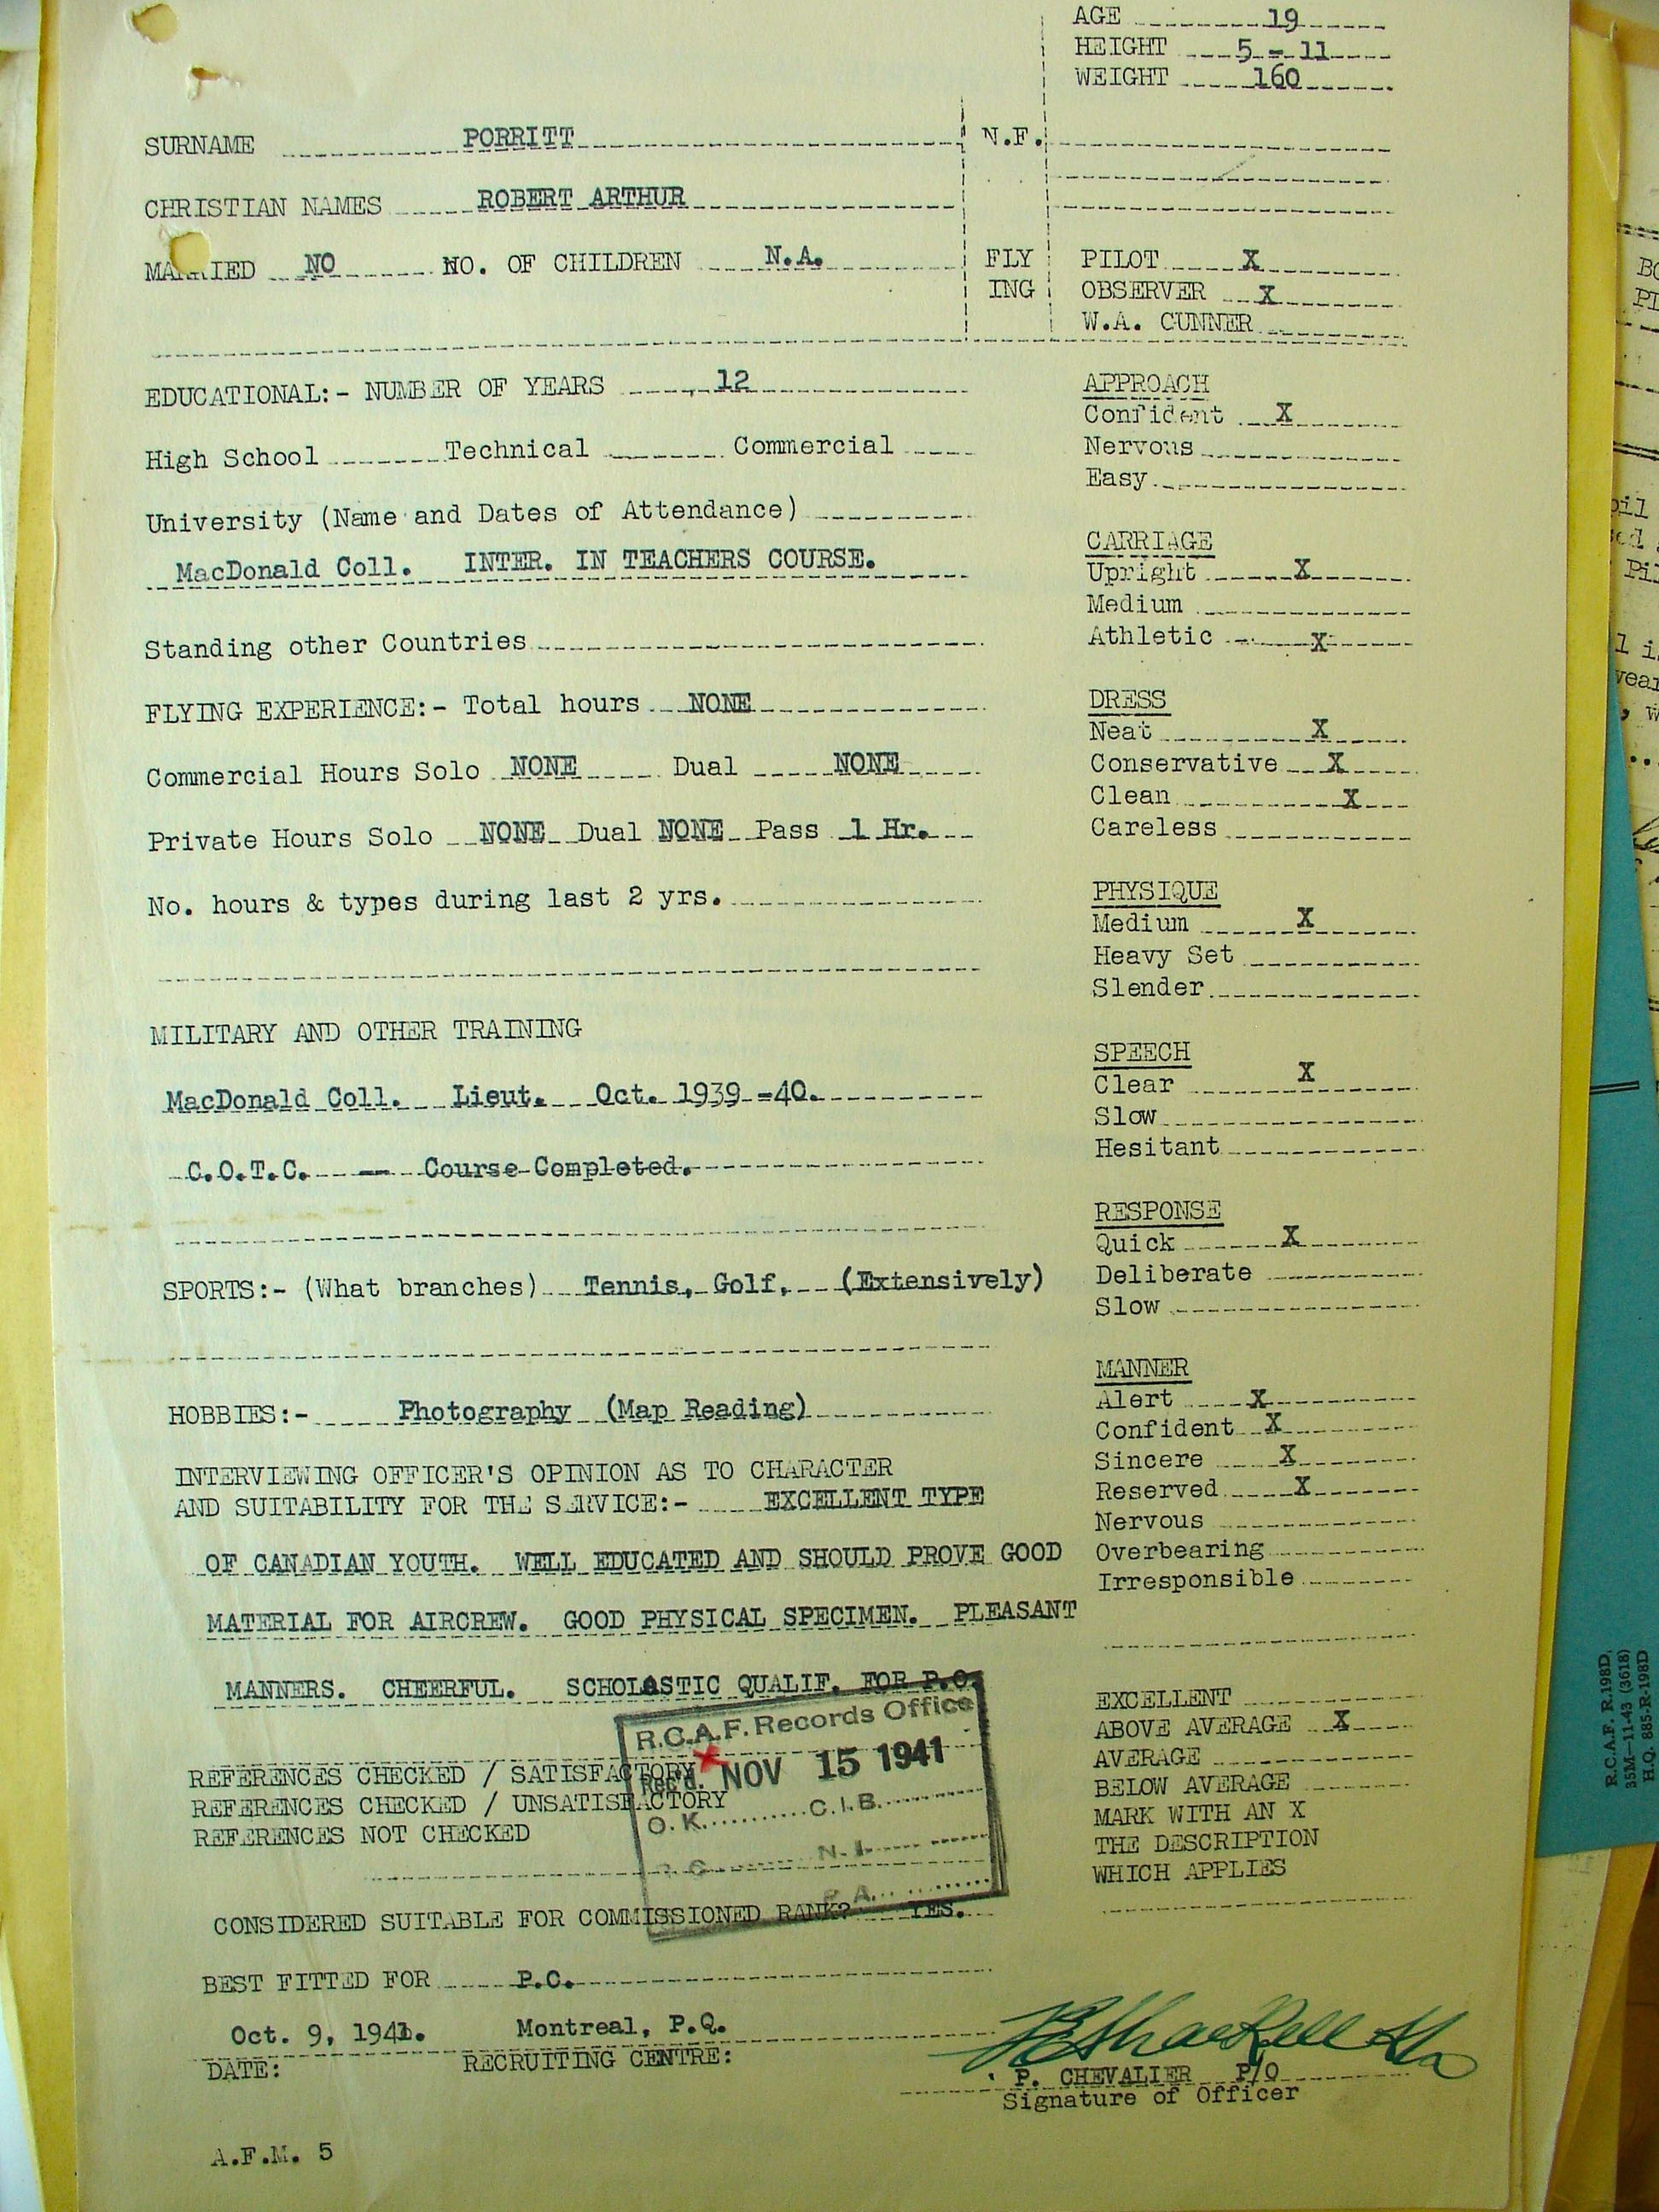 AGE 19
HEIGHT 5 - 11
WEIGHT 160
SURNAME PORRITT N.F.
CHRISTIAN NAMES ROBERT ARTHUR
MARRIED NO NO. OF CHILDREN N.A.
FLYING
PILOT X
OBSERVER X
W.A. GUNNER
EDUCATIONAL:- NUMBER OF YEARS 12
High School Technical Commercial
University (Name and Dates of Attendance)
MacDonald Coll. INTER. IN TEACHERS COURSE.
Standing other Countries
FLYING EXPERIENCE:- Total hours NONE
Commercial Hours Solo NONE Dual NONE
Private Hours Solo NONE Dual NONE Pass 1 Hr.
No. hours & types during last 2 yrs.
MILITARY AND OTHER TRAINING
MacDonald Coll. Lieut. Oct. 1939 -40.
C.O.T.C. — Course Completed.
SPORTS:- (What branches) Tennis, Golf, (Extensively)
HOBBIES:- Photography (Map Reading)
INTERVIEWING OFFICER'S OPINION AS TO CHARACTER
AND SUITABILITY FOR THE SERVICE:- EXCELLENT TYPE
OF CANADIAN YOUTH. WELL EDUCATED AND SHOULD PROVE GOOD
MATERIAL FOR AIRCREW. GOOD PHYSICAL SPECIMEN. PLEASANT
MANNERS. CHEERFUL. SCHOLASTIC QUALIF. FOR P.O.
REFERENCES CHECKED / SATISFACTORY
REFERENCES CHECKED / UNSATISFACTORY
REFERENCES NOT CHECKED
R.C.A.F. Records Office
Rec'd. NOV 15 1941
O.K. C.I.B.
N.I.
P.A.
CONSIDERED SUITABLE FOR COMMISSIONED RANK? YES.
BEST FITTED FOR P.O.
Oct. 9, 1941. Montreal, P.Q.
DATE: RECRUITING CENTRE:
APPROACH
Confident X
Nervous
Easy
CARRIAGE
Upright X
Medium
Athletic X
DRESS
Neat X
Conservative X
Clean X
Careless
PHYSIQUE
Medium X
Heavy Set
Slender
SPEECH
Clear X
Slow
Hesitant
RESPONSE
Quick X
Deliberate
Slow
MANNER
Alert X
Confident X
Sincere X
Reserved X
Nervous
Overbearing
Irresponsible
EXCELLENT
ABOVE AVERAGE X
AVERAGE
BELOW AVERAGE
MARK WITH AN X
THE DESCRIPTION
WHICH APPLIES
P. CHEVALIER P/O
Signature of Officer
A.F.M. 5
R.C.A.F. R.198D.
35M—11-43 (3618)
H.Q. 885-R-198D